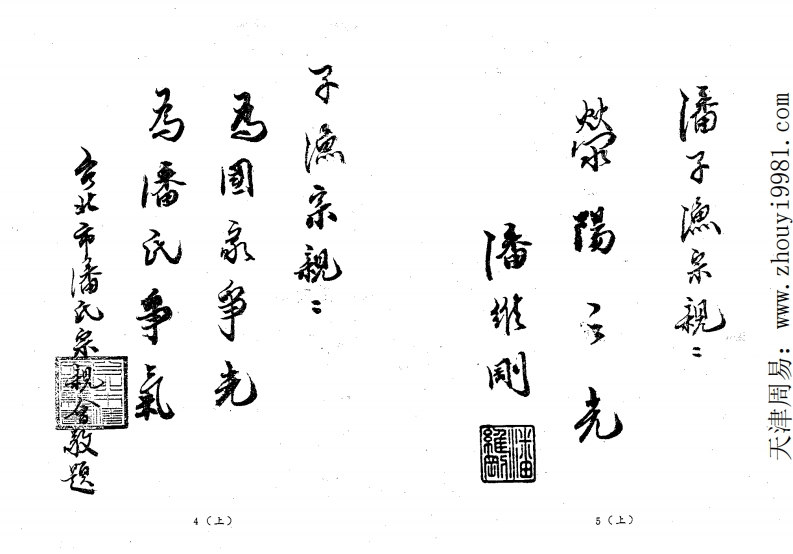 潘子漁宗親：
滎陽之光
潘維剛
潘維剛
子漁宗親：
為國家爭光
為潘氏爭氣
台北市潘氏宗親會敬題
4（上）
5（上）
天津周易：www.zhouyi9981.com